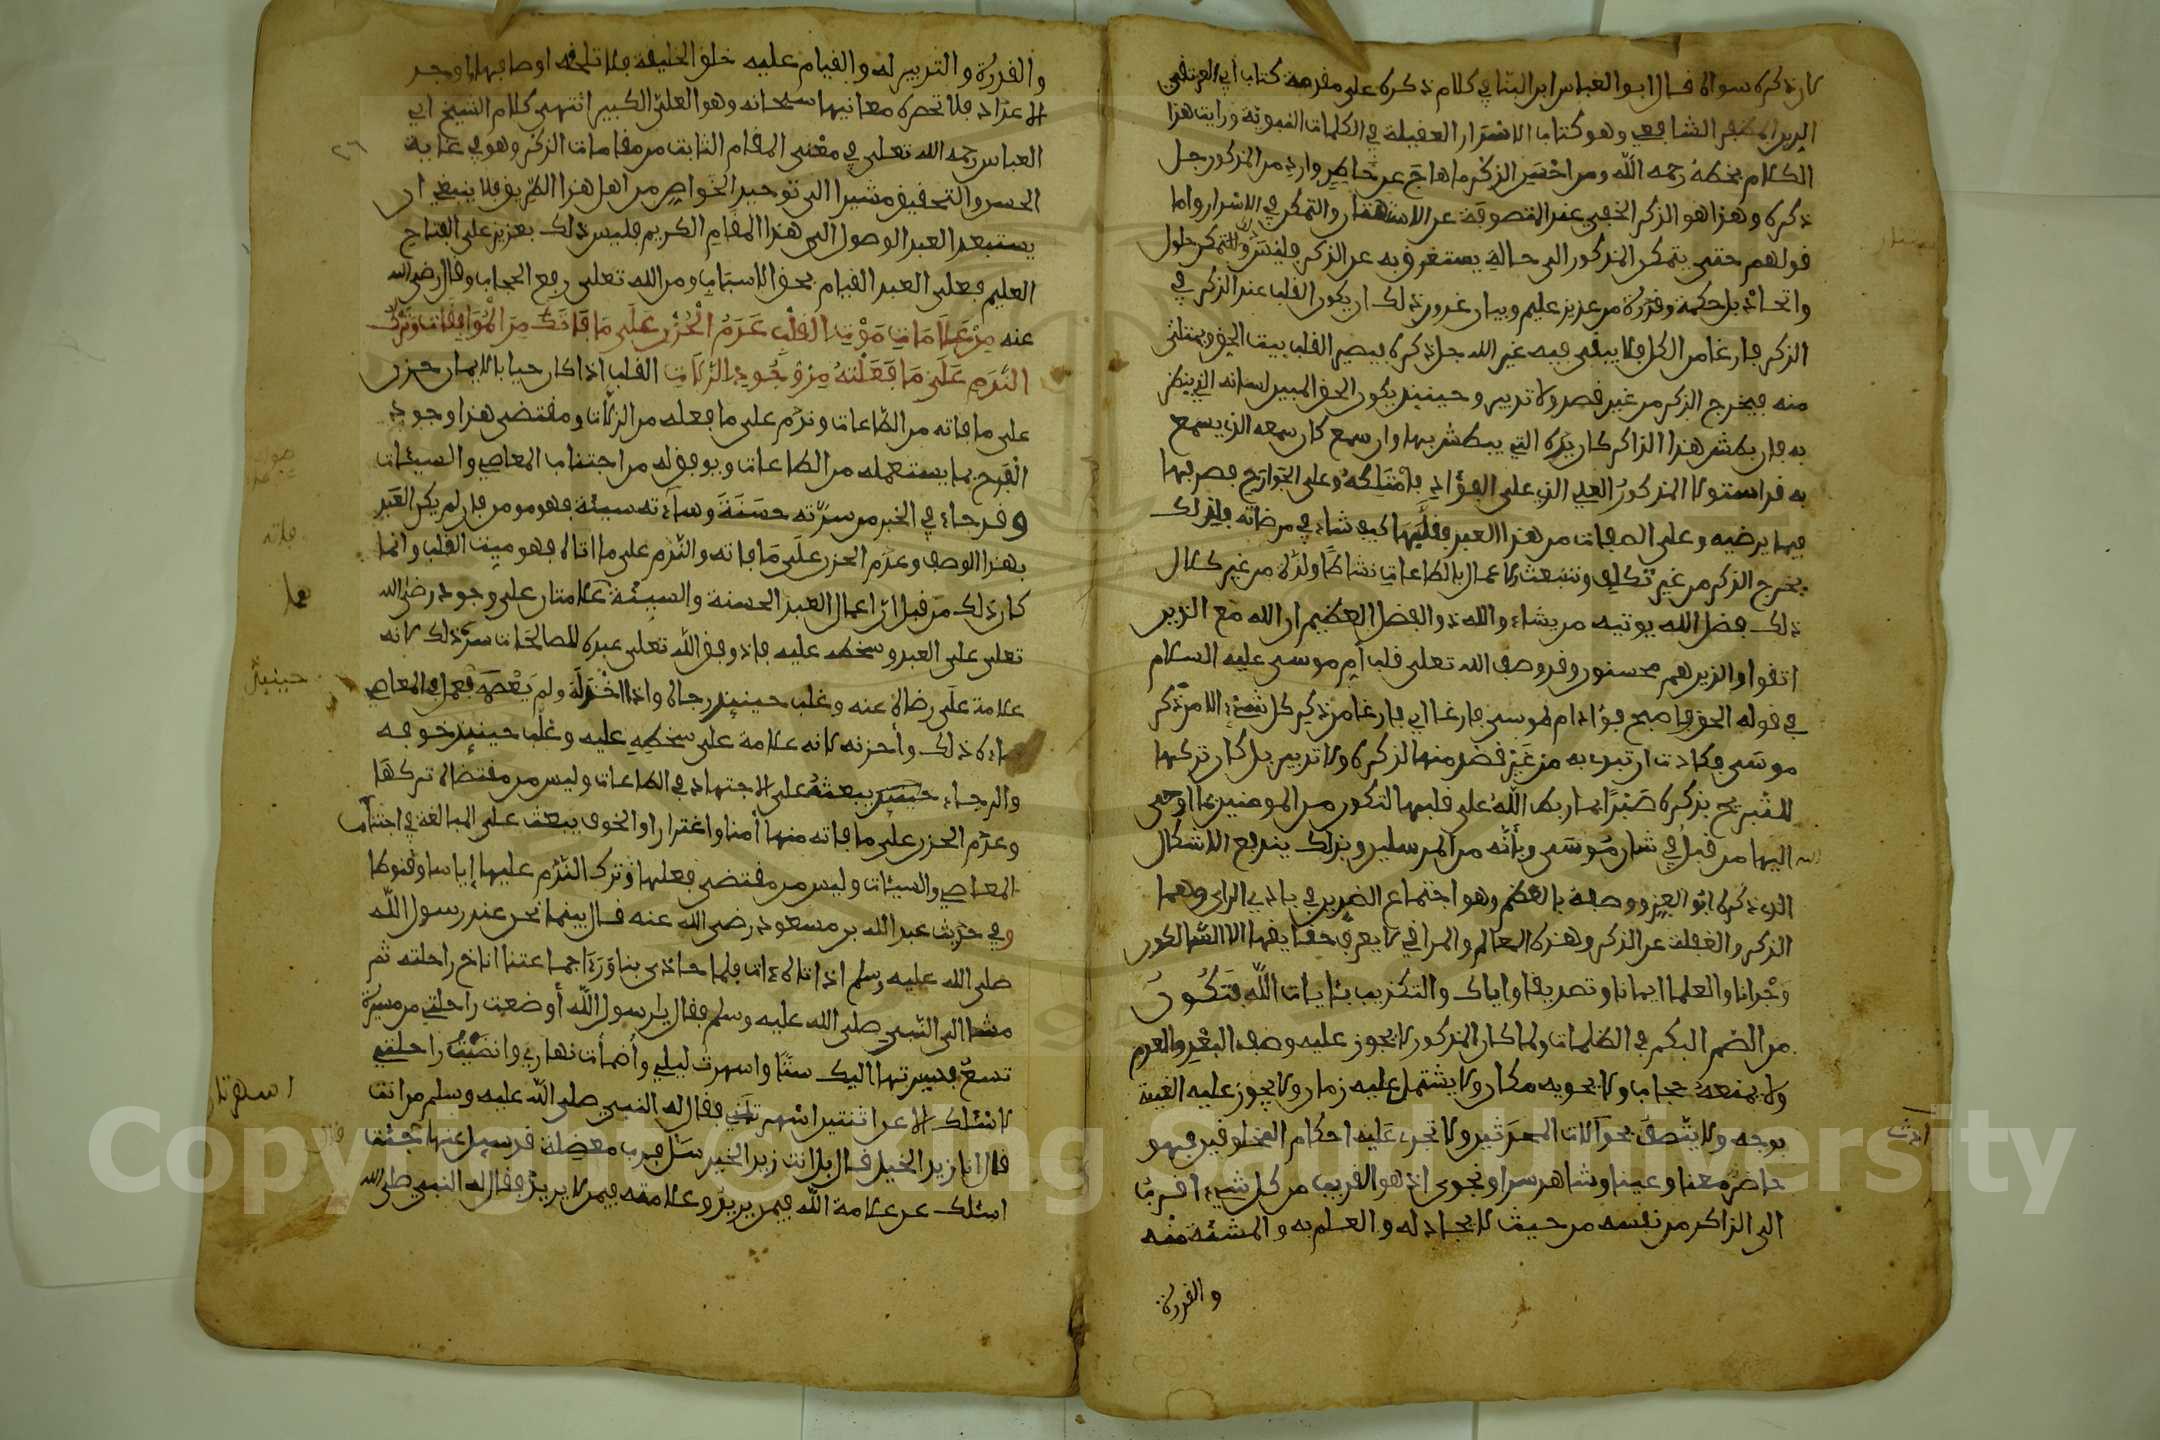 كان ذكره سواه قال ابو العباس ابن البنا في كلام ذكره على مقدمة كتاب ابي العز تقي
الدين المظفر الشافعي وهو كتاب الاسرار العقلية في الكلمات النبوية ورايت هذا
الكلام بخطه رحمه الله ومن احسن الذكر ما هاج عن خاطر وارد من المذكور جل
ذكره وهذا هو الذكر الخفي عند المتصوفة عن الاستهتار والتمكن في الاسرار واما
قولهم حتى يتمكن المذكور الى حالة يستغرق به عن الذكر فليس والتمكن حلول
واتحاد بل حكمة وقدرة من عزيز عليم وبيان غرور ذلك ان يكون القلب عند الذكر في
الذكر فارغا من الكل فلا يبقى فيه غير الله جل ذكره فيصير القلب بيت الحق ويمتلئ
منه فيخرج الذكر من غير قصد ولا تدبير وحينئذ يكون الحق المبين لسانه الذي ينطق
به فان بطش هذا الذاكر كان يده التي يبطش بها وان سمع كان سمعه الذي يسمع
به قد استولا المذكور العلي الذي على الفؤاد فامتلكه وعلى الجوارح فصرفها
فيما يرضيه وعلى الصفات من هذا العبد فقلبها كيف شاء في مرضاته فلذلك
يخرج الذكر من غير تكلف وتنبعث الاعمال بالطاعات نشاطا ولذة من غير كلال
ذلك فضل الله يوتيه من يشاء والله ذو الفضل العظيم ان الله مع الذين
اتقوا والذين هم محسنون وقد وصف الله تعلى قلب ام موسى عليه السلام
في قوله الحق فاصبح فؤاد ام موسى فارغا اي فارغا من ذكر كل شيء الا من ذكر
موسى فكادت ان تبدي به من غير قصد منها لذكره ولا تدبير بل كان تركها
للتصريح بذكره صبرا بما ربط الله على قلبها لتكون من المومنين بما اوحى
اليها من قبل في شان موسى وبأنه من المرسلين وبذلك يندفع الاشكال
الذي ذكره ابو العز ووصفه بالعظم وهو اجتماع الضدين في بادي الراي وهما
الذكر والغفلة عن الذكر وهذه المعالم والمراقي لا يعرف حقايقها الا السالكون
وجدانا والعلما ايمانا وتصديقا واياك والتكذيب بئايات الله فتكون
من الصم البكم في الظلمات ولما كان المذكور لا يجوز عليه وصف الفقد والعدم
ولا يمنعه حجاب ولا يحويه مكان ولا يشتمل عليه زمان ولا يجوز عليه الغيبة
بوجه ولا يتصف بحوادث المحدثين ولا تجري عليه احكام المخلوقين فهو
حاضر معنا وعينا وشاهد سرا ونجوى اذ هو القريب من كل شيء اقرب
الى الذاكر من نفسه من حيث الايجاد له والعلم به والمشئه منه
والقدرة
والقدرة والتدبير له والقيام عليه خلق الخليقة فلا تلحقه اوصافها اوجد
الاعداد فلا تحصره معانيها سبحانه وهو العلي الكبير انتهى كلام الشيخ ابي
العباس رحمه الله تعلى في معنى المقام الثالث من مقامات الذكر وهو في غاية
الحسن والتحقيق مشيرا الى توحيد الخواص من اهل هذا الطريق فلا ينبغي ان
يستبعد العبد الوصول الى هذا المقام الكريم فليس ذلك بعزيز على الفتاح
العليم فعلى العبد القيام بحق الاسباب ومن الله تعلى رفع الحجاب وقال رضي الله
عنه من علامات موت القلب عدم الحزن على ما فاتك من الموافقات وترك
الندم على ما فعلته من وجود الزلات القلب اذا كان حيا بالايمان حزن
على ما فاته من الطاعات وندم على ما فعله من الزلات ومقتضى هذا وجود
الفرح بما يستعمله من الطاعات ويوفق له من اجتناب المعاصي والسيئات
وقد جاء في الخبر من سرته حسنة وساءته سيئة فهو مومن فان لم يكن العبد
بهذا الوصف وعدم الحزن على ما فاته والندم على ما اتاه فهو ميت القلب وانما
كان ذلك من قبل ان اعمال العبد الحسنة والسيئة علامتان على وجود رضى الله
تعلى على العبد وسخطه عليه فاذا وفق الله تعلى عبده للصالحات سره ذلك لانه
علامة على رضاه عنه وغلب حينئذ رجاه واذا خذله ولم يعصمه فعمل المعاصي
ساءه ذلك وأحزنه لانه علامة على سخطه عليه وغلب حينئذ خوفه
والرجاء يبعثه على الاجتهاد في الطاعات وليس من مقتضاه تركها
وعدم الحزن على ما فاته منها أمنا واغترارا والخوف يبعث على المبالغة في اجتناب
المعاصي والسيئات وليس من مقتضى فعلها وترك الندم عليها إياسا وقنوطا
وفي حديث عبد الله بن مسعود رضي الله عنه قال بينما نحن عند رسول الله
صلى الله عليه وسلم اذ اتاه ءات فلما حاذى بنا ورءا جماعتنا اناخ راحلته ثم
مشا الى النبي صلى الله عليه وسلم فقال يا رسول الله أوضعت راحلتي من مسيرة
تسع فسيرتها اليك ستا واسهرت ليلي وأضمأت نهاري وانضيت راحلتي
لاسئلك عن اثنتين اسهرتاني فقال له النبي صلى الله عليه وسلم من انت
قال انا زيد الخيل قال بل انت زيد الخير سل فرب معضلة قد سيل عنها قال جئت
اسئلك عن علامة الله فيمن يريد وعلامته فيمن لا يريد فقال له النبي صلى الله
حينئذ